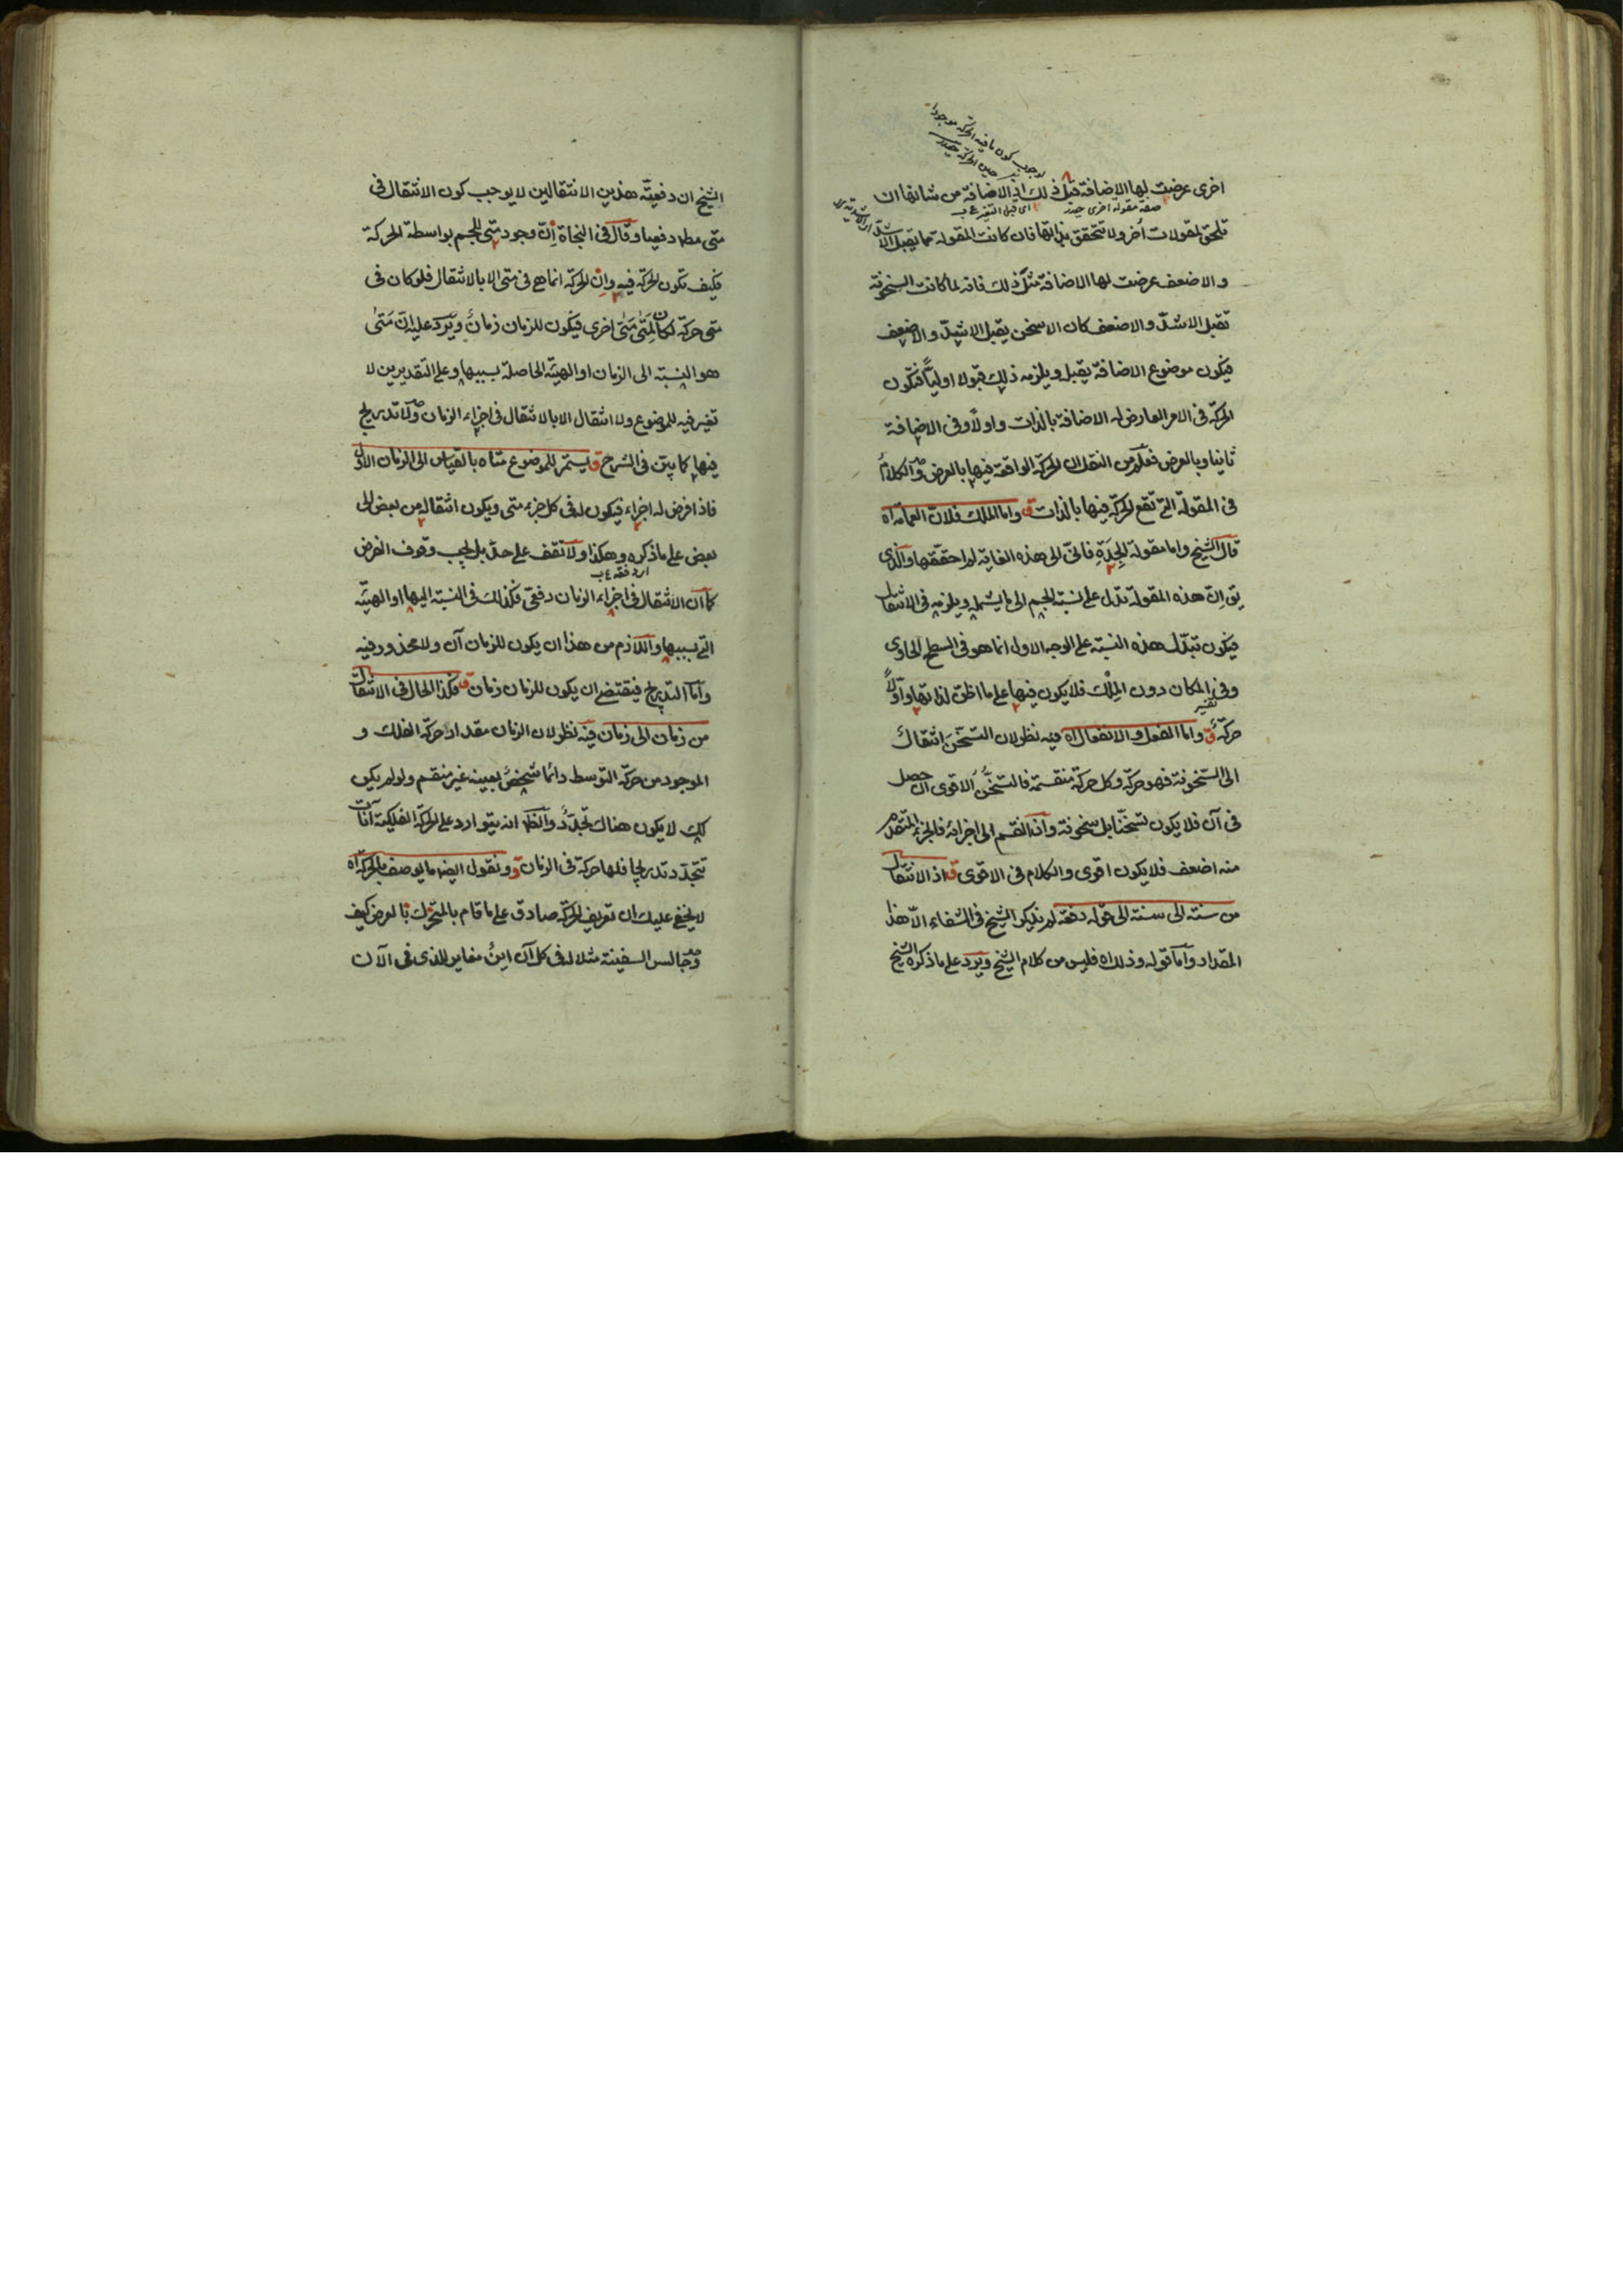 اخرى عرضت لها الاضافة قبل ذلك اذ الاضافة من شانها ان
تلحق لمقولات أخر ولا تتحقق بذاتها فان كانت المقولة مما يقبل الاشدّ
والاضعف عرضت لها الاضافة مثل ذلك فانه لما كانت السخونة
تقبل الاشدّ والاضعف كان الاسخن يقبل الاشدّ والاضعف
فيكون موضوع الاضافة يقبل ويلزمه ذلك قبولا اوليًّا فتكون
الحركة فى الامر العارض له الاضافة بالذات واولًا وفى الاضافة
ثانيا وبالعرض فعلم من النقل ان الحركة الواقعة فيها بالعرض والكلام
فى المقولة التي تقع الحركة فيها بالذات ق واما الملك فلان العمامة اه
قال الشيخ واما مقولة الجِدَة فانّى الى هذه الغاية لم احققها والذى
يق انّ هذه المقولة تدل على نسبة الجسم الى ما يشمله ويلزمه فى الانتقال
فيكون تبدّل هذه النسبة على الوجه الاول انما هو فى السطح الحاوى
وفى المكان دون المِلْك فلا يكون فيها على ما اظن لذاتها واوّلًا
حركة ق واما الفعل والانفعال اه فيه نظر لان التسخّن انتقال
الى السخونة فهو حركة وكل حركة منقسمة فالتسخّن الاقوى ان حصل
فى آن فلا يكون تسخنا بل سخونة وان انقسم الى اجزائه فالجزء المتقدم
منه اضعف فلا يكون اقوى والكلام فى الاقوى ق اذ الانتقال
من سنة الى سنة الى قوله دفعة لم يذكر الشيخ فى الشفاء الا هذا
المقدار واما قوله وذلك اه فليس من كلام الشيخ ويرد على ما ذكره الشيخ
الشيخ ان دفعيّة هذين الانتقالين لا يوجب كون الانتقال فى
متى مطلا دفعيا وقال فى النجاة إنّ وجود متى للجسم بواسطة الحركة
فكيف تكون الحركة فيه وانّ الحركة انما هى فى متى الا بالانتقال فلو كان فى
متى حركة لكان لِمَتى مَتى اخرى فيكون للزمان زمانٌ ويَرِد عليه انّ مَتى
هو النسبة الى الزمان او الهيئة الحاصلة بسببها وعلى التقديرين لا
تغير فيه للموضوع ولا انتقال الا بالانتقال فى اجزاء الزمان ولا تدريج
فيها كما بيّن فى الشرح ق يستمر للموضوع متاه بالقياس الى الزمان الاول
فاذا فرض له اجزاء فيكون له فى كل جزء متى ويكون انتقاله من بعض الى
بعض على ما ذكره وهكذا ولا تقف على حدّ بل يجب وقوف الفرض
كما ان الانتقال فى اجزاء الزمان دفعى فكذلك فى النسبة اليها او الهيئة
التي بسببها واللازم من هذا ان يكون للزمان آن ولا محذور فيه
واما التدريج فيقتضى ان يكون للزمان زمان ق فكذا الحال فى الانتقال
من زمان الى زمان فيه نظر لان الزمان مقدار حركة الفلك و
الموجود من حركة التوسط دائما شخص بعينه غير منقسم ولو لم يكن
كك لا يكون هناك تجدّد والظ انه يتوارد على الحركة الفلكية آنات
تتجدّد تدريجا فلها حركة فى الزمان ق ونقول ايضا ما يوصف بالحركة اه
لا يخفى عليك ان تعريف الحركة صادق على ما قام بالمتحرك بالعرض كيف
وجالس السفينة مثلا له فى كل آن اينٌ مغاير للذى فى الآن